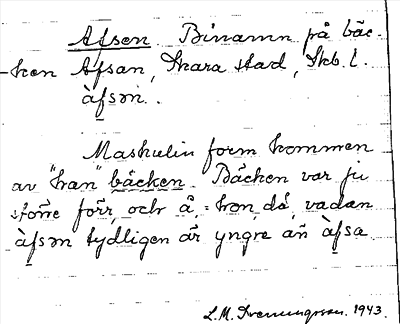 Afsen. Binamn på bäc-
ken Afsan, Skara stad, Skb. l.
àfsən..
Maskulin form kommen
av "han" bäcken. Bäcken var ju
större förr, och å, = hon, då, vadan
àfsən tydligen är yngre än àfsa.
L.M. Svenungsson. 1943.